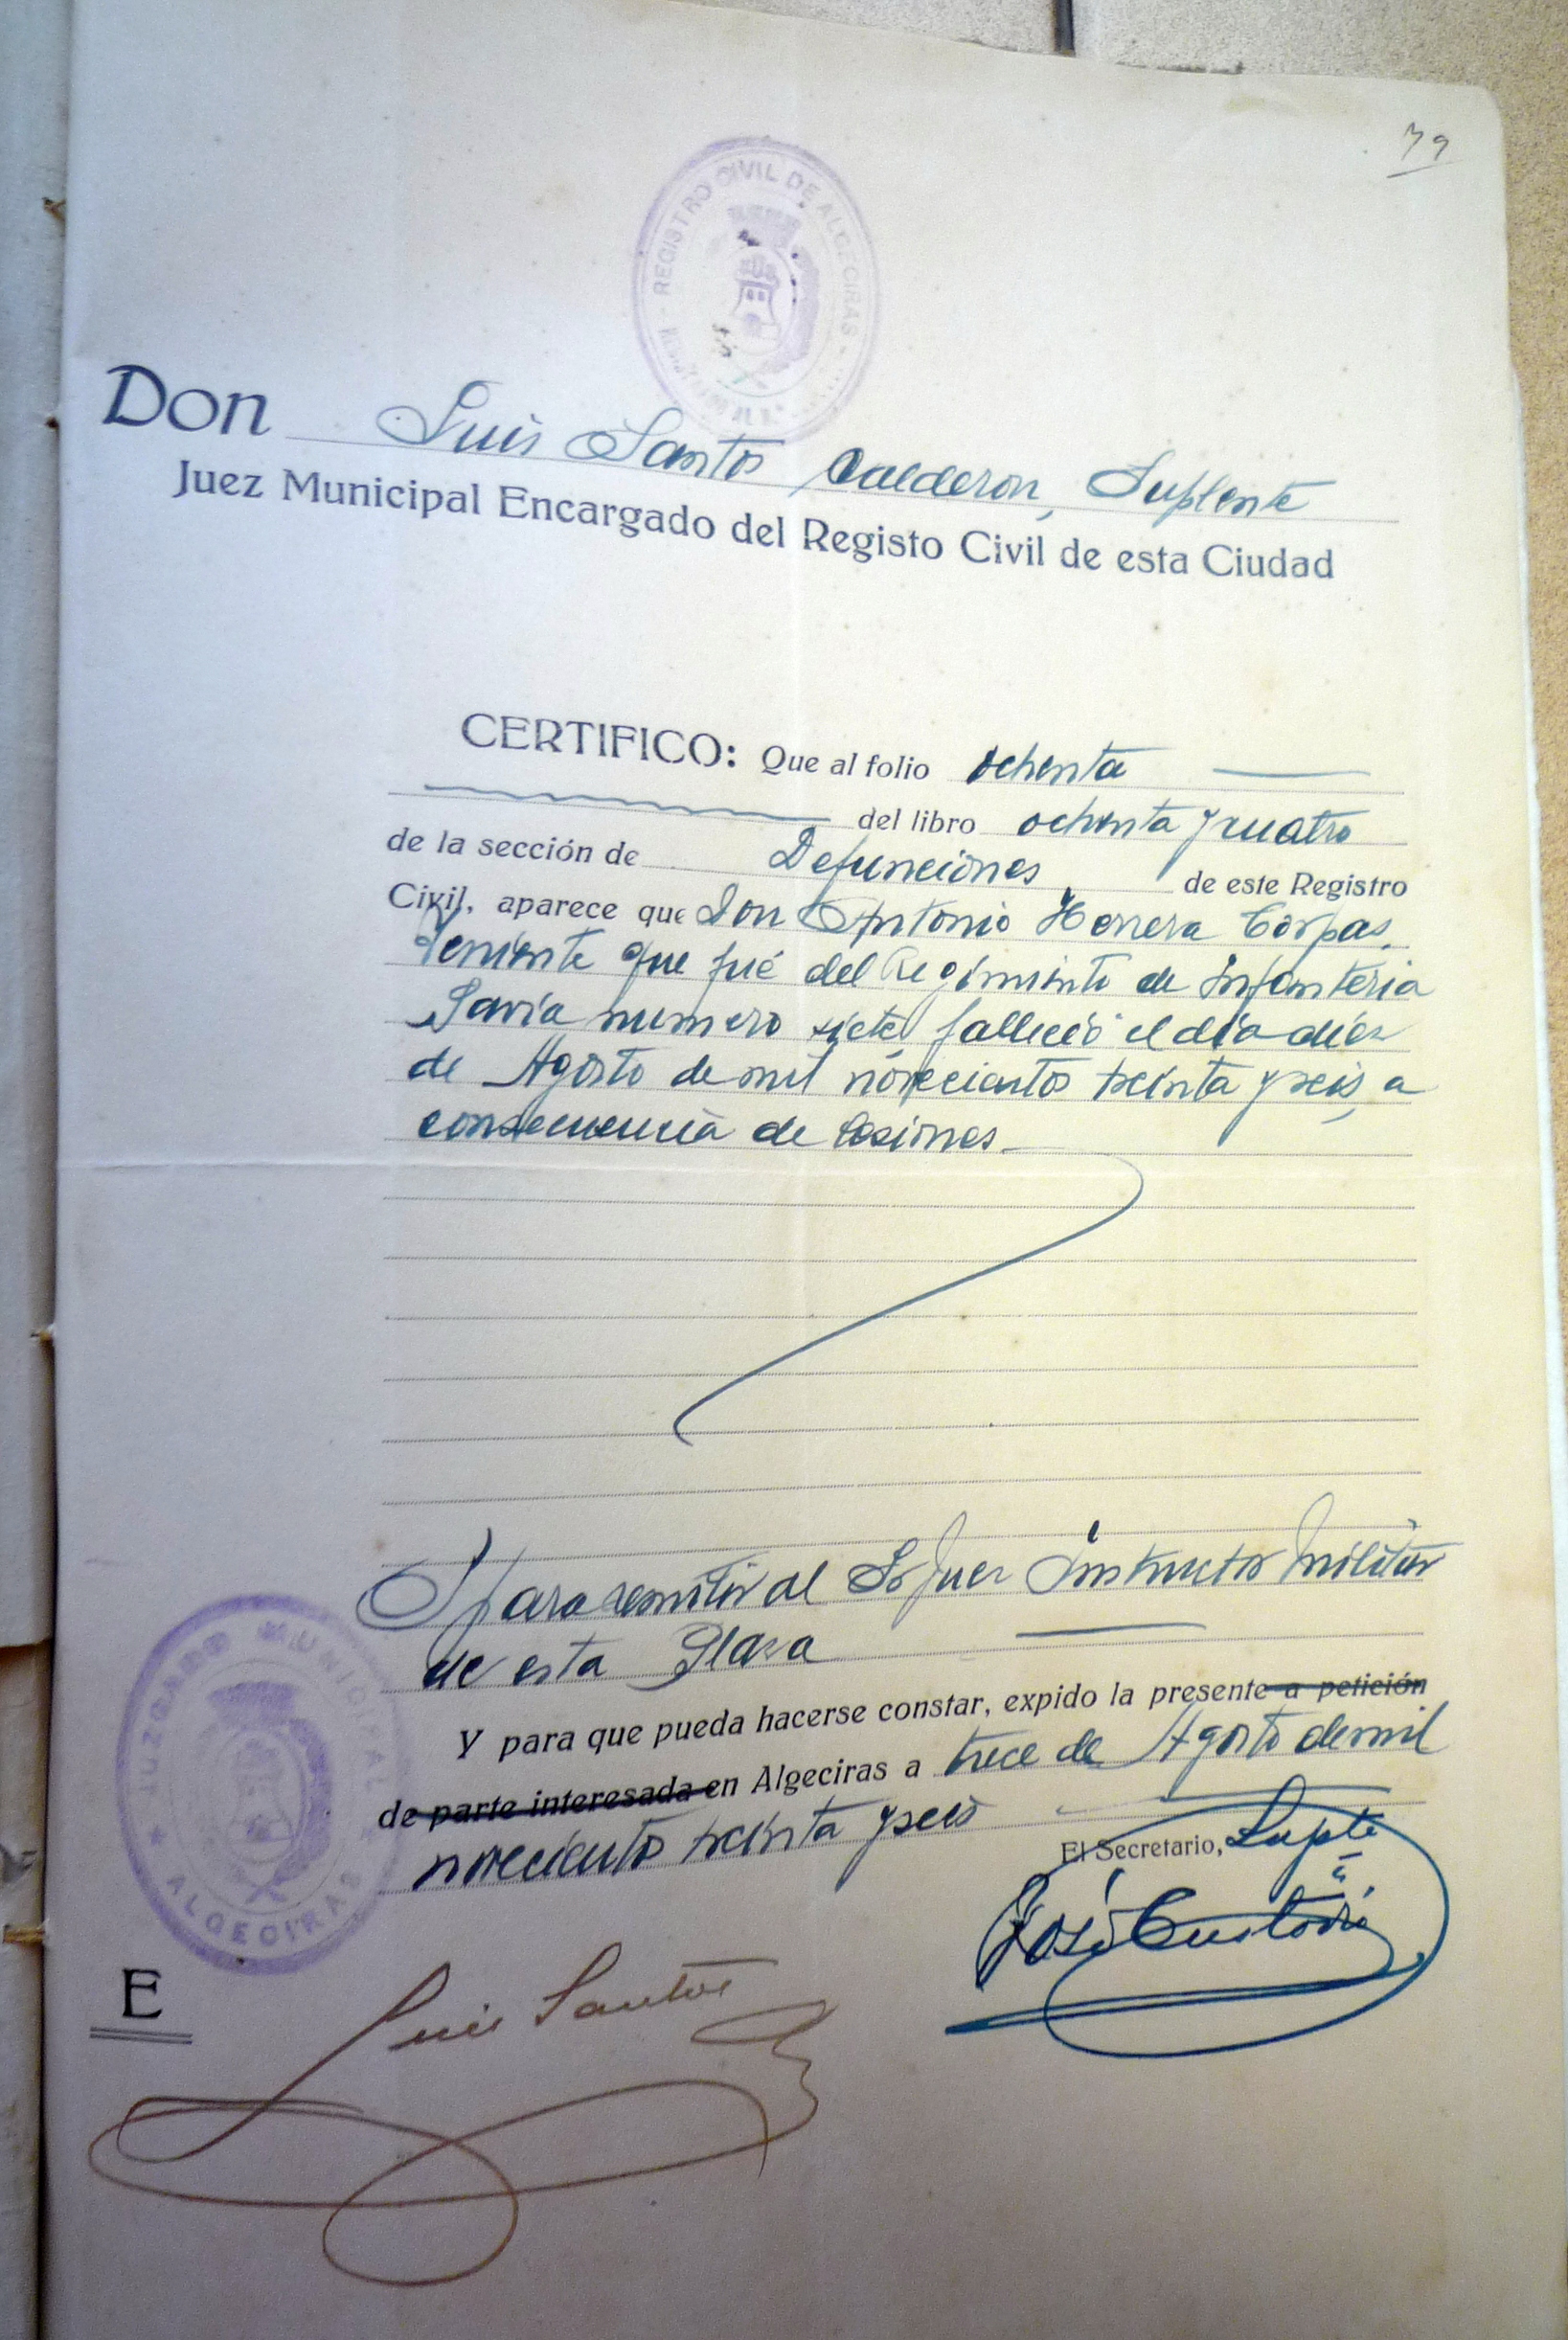 79
REGISTRO CIVIL DE ALGECIRAS
Don Luis Santos Calderon, Suplente
Juez Municipal Encargado del Registo Civil de esta Ciudad
CERTIFICO: Que al folio ochenta
del libro ochenta y cuatro
de la sección de Defunciones de este Registro
Civil, aparece que Don Antonio Herrera Corpas,
Teniente que fué del Regimiento de Infanteria
Pavía numero siete, falleció el dia diez
de Agosto de mil novecientos treinta y seis, a
consecuencia de lesiones.
Y para remitir al Sr Juez Instructor Militar
de esta Plaza
Y para que pueda hacerse constar, expido la presente a petición
de parte interesada en Algeciras a trece de Agosto de mil
novecientos treinta y seis
El Secretario, Suplte
José Custodio
JUZGADO MUNICIPAL
ALGECIRAS
E
Luis Santos